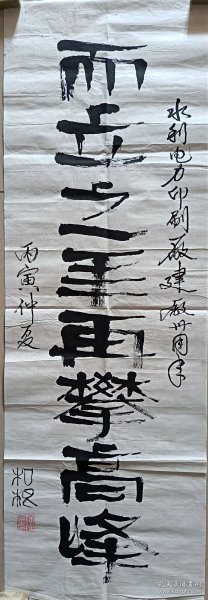 水利电力印刷厰建厰卅周年
而立之年再攀高峰
丙寅仲夏